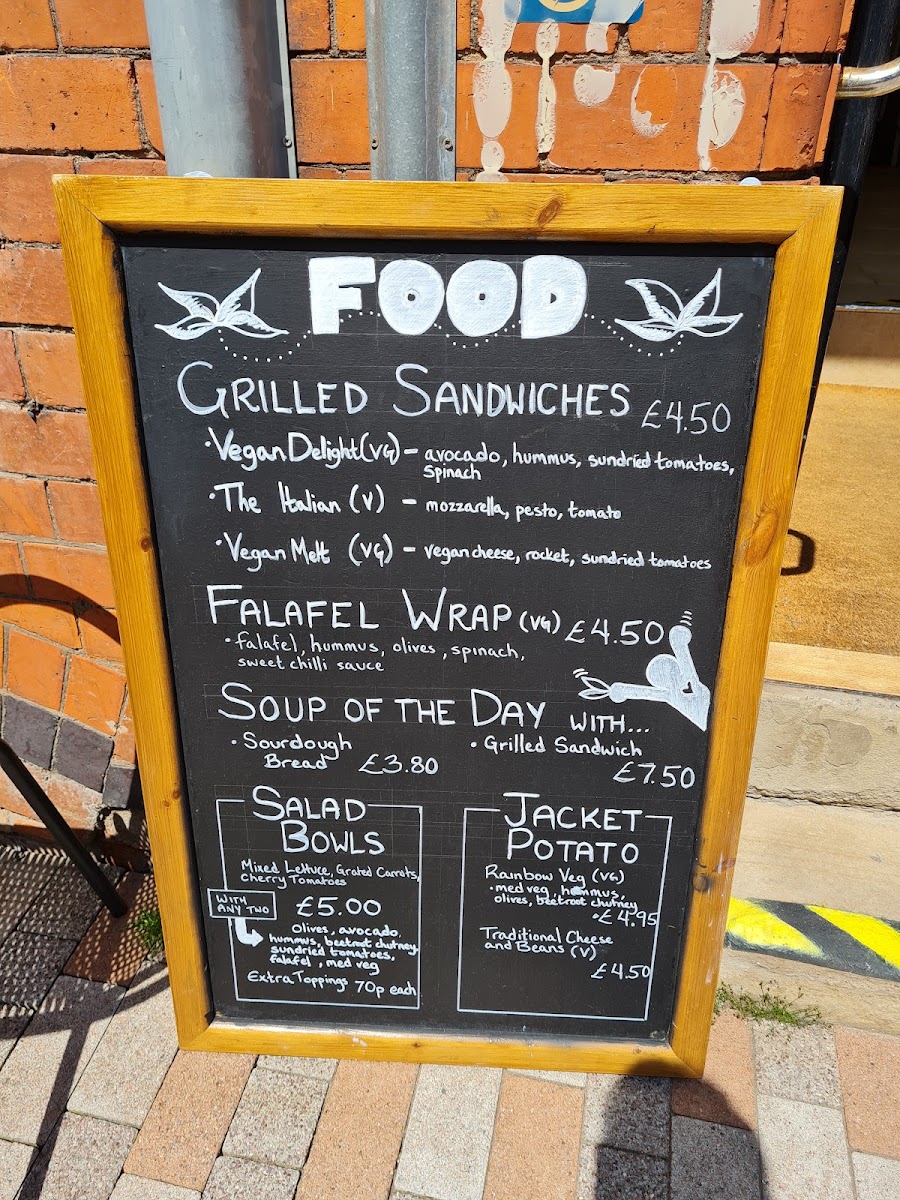 FOOD
GRILLED SANDWICHES £4.50
·Vegan Delight (VG) – avocado, hummus, sundried tomatoes,
spinach
·The Italian (V) – mozzarella, pesto, tomato
·Vegan Melt (VG) – vegan cheese, rocket, sundried tomatoes
FALAFEL WRAP (VG) £4.50
·falafel, hummus, olives, spinach,
sweet chilli sauce
SOUP OF THE DAY WITH...
·Sourdough
Bread £3.80
·Grilled Sandwich
£7.50
SALAD
BOWLS
Mixed Lettuce, Grated Carrots,
Cherry Tomatoes
WITH
ANY TWO
£5.00
olives, avocado,
hummus, beetroot chutney
sundried tomatoes,
falafel, med veg
Extra Toppings 70p each
JACKET
POTATO
Rainbow Veg (VG)
·med veg, hummus,
olives, beetroot chutney
·£4.95
Traditional Cheese
and Beans (V)
£4.50